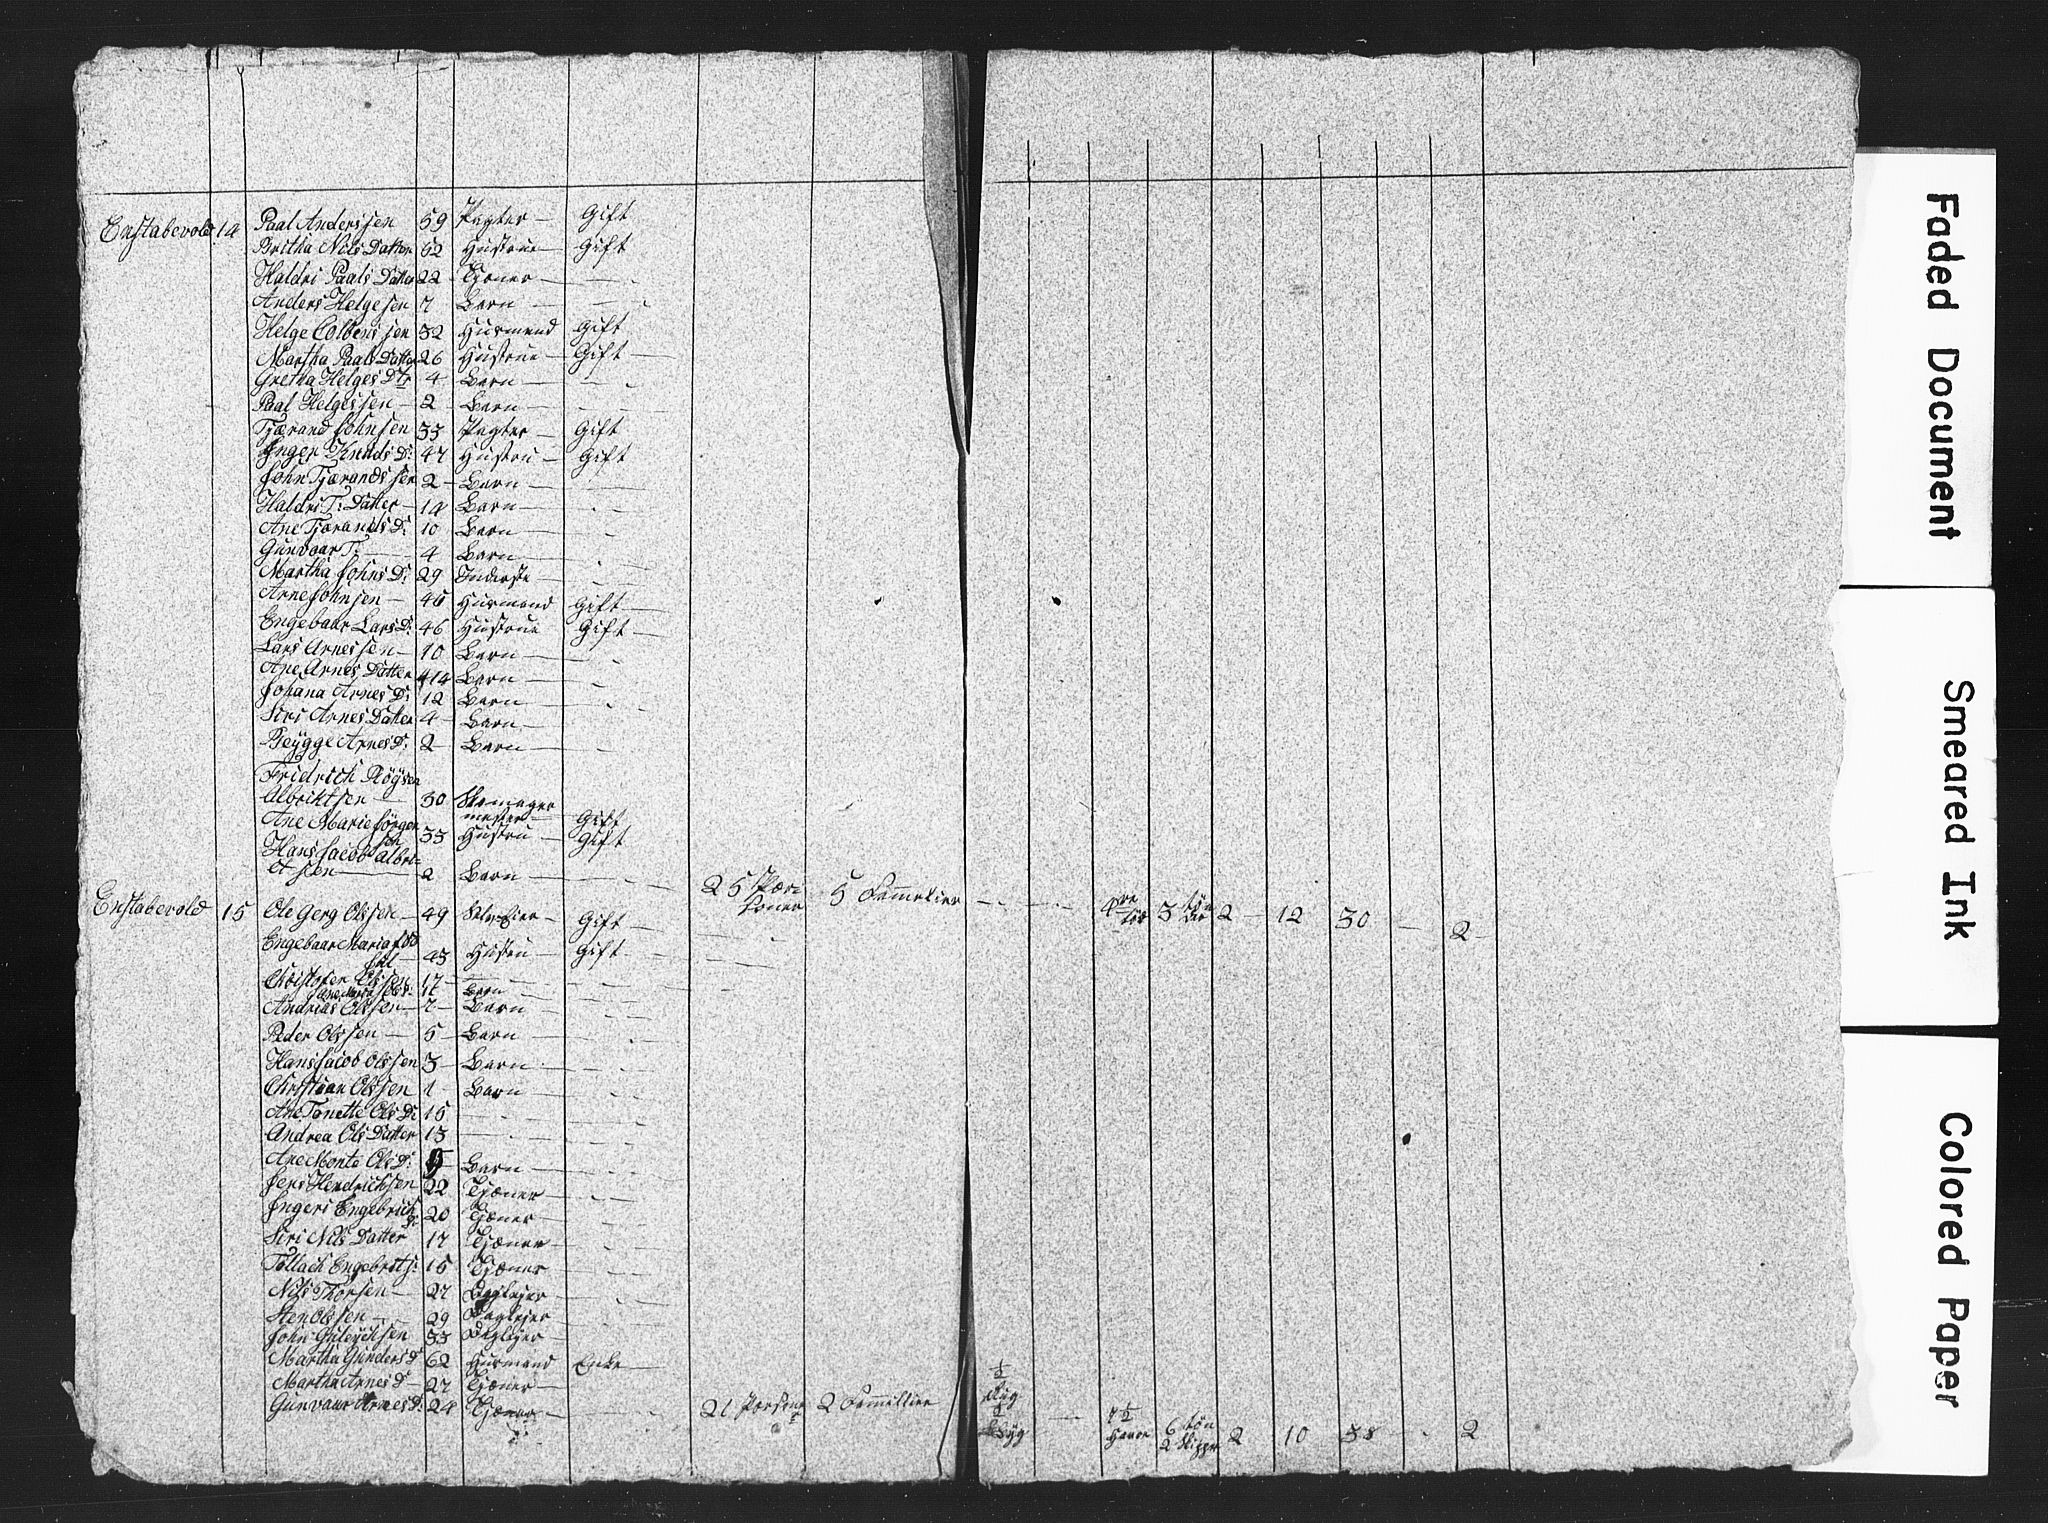 Enstabevold 14 Paal Anderssen 59 Pagter — Gift
Britha Nils Datter 62 Hustrue — Gift
Haldri Paals Datter 22 Tjener —
Anders Helgesen 7 Barn —
Helge Colbenssen 32 Husmand Gift
Martha Paals Datter 26 Hustrue — Gift —
Gretha Helges Dtr 4 — Barn —
Paal Helgessen — 2 — Barn —
Tjærand Johnsen 33 Pagter — Gift
Inger Knuds D: 47 Hustru — Gift
John Tjærandssen 2 — Barn —
Haldri T: Datter — 14 Barn —
Ane Tjærands D: 10 Barn —
Gunvaar T: — 4 Barn —
Martha Johns D: 29 Inderste —
Arne Johnsen — 46 Husmand Gift —
Engebaar Lars D: 46 Hustrue Gift —
Lars Arnessen — 10 Barn —
Ane Arnes Datter 14 Barn —
Johana Arnes D: 12 Barn —
Siri Arnes Datter 4 — Barn —
Arnes D: 2 — Barn —
Fridrich Röysen
Albriktsen — 30 Skomager
mester — Gift
Ane Marie Jörgen
sen 33 Hustru — Gift
Hans Jacob Albri-
ctsen — 2 Barn — 25 Pær
soner 5 Fammelier 3 tön
der 2 — 12 30 — 2
Enstabevold 15 Ole Gerg Olssen — 49 Gift —
Engebaar Maria
45 Hustru — Gift —
Christofer Olssen 17 —
Ane Maria Ols D: 11 Barn
Andrias Olssen — 7 — Barn —
Peder Olssen — 5 — Barn —
Hans Jacob Olssen 3 — Barn —
Christian Olssen 1 Barn —
Ane Tonette Ols D: 15
Andrea Ols Datter 13
Ane Monte Ols D: 9 Barn —
Jens Hendrichsen 22 Tjæner —
Ingeri Engebrich
D: 20 Tjæner —
Siri Nils Datter 17 Tjæner —
Tollach Engebrets: 15 Tjæner
Nils Thorsen — 27 Daglejer
Sten Olssen — 29 Daglejer
John 33 Daglejer —
Martha Gunders D 62 Husmand Enke —
Martha Arnes D — 27 Tjæner —
Gunvaur Arnes D: 24 Tjæner — 21 Persone
r 2 Fammillier ½
Rug
½
Byg — 7 ½
Havre 6 tön
2 skippr 2 10 38 - 2
Faded Document
Smeared Ink
Colored Paper